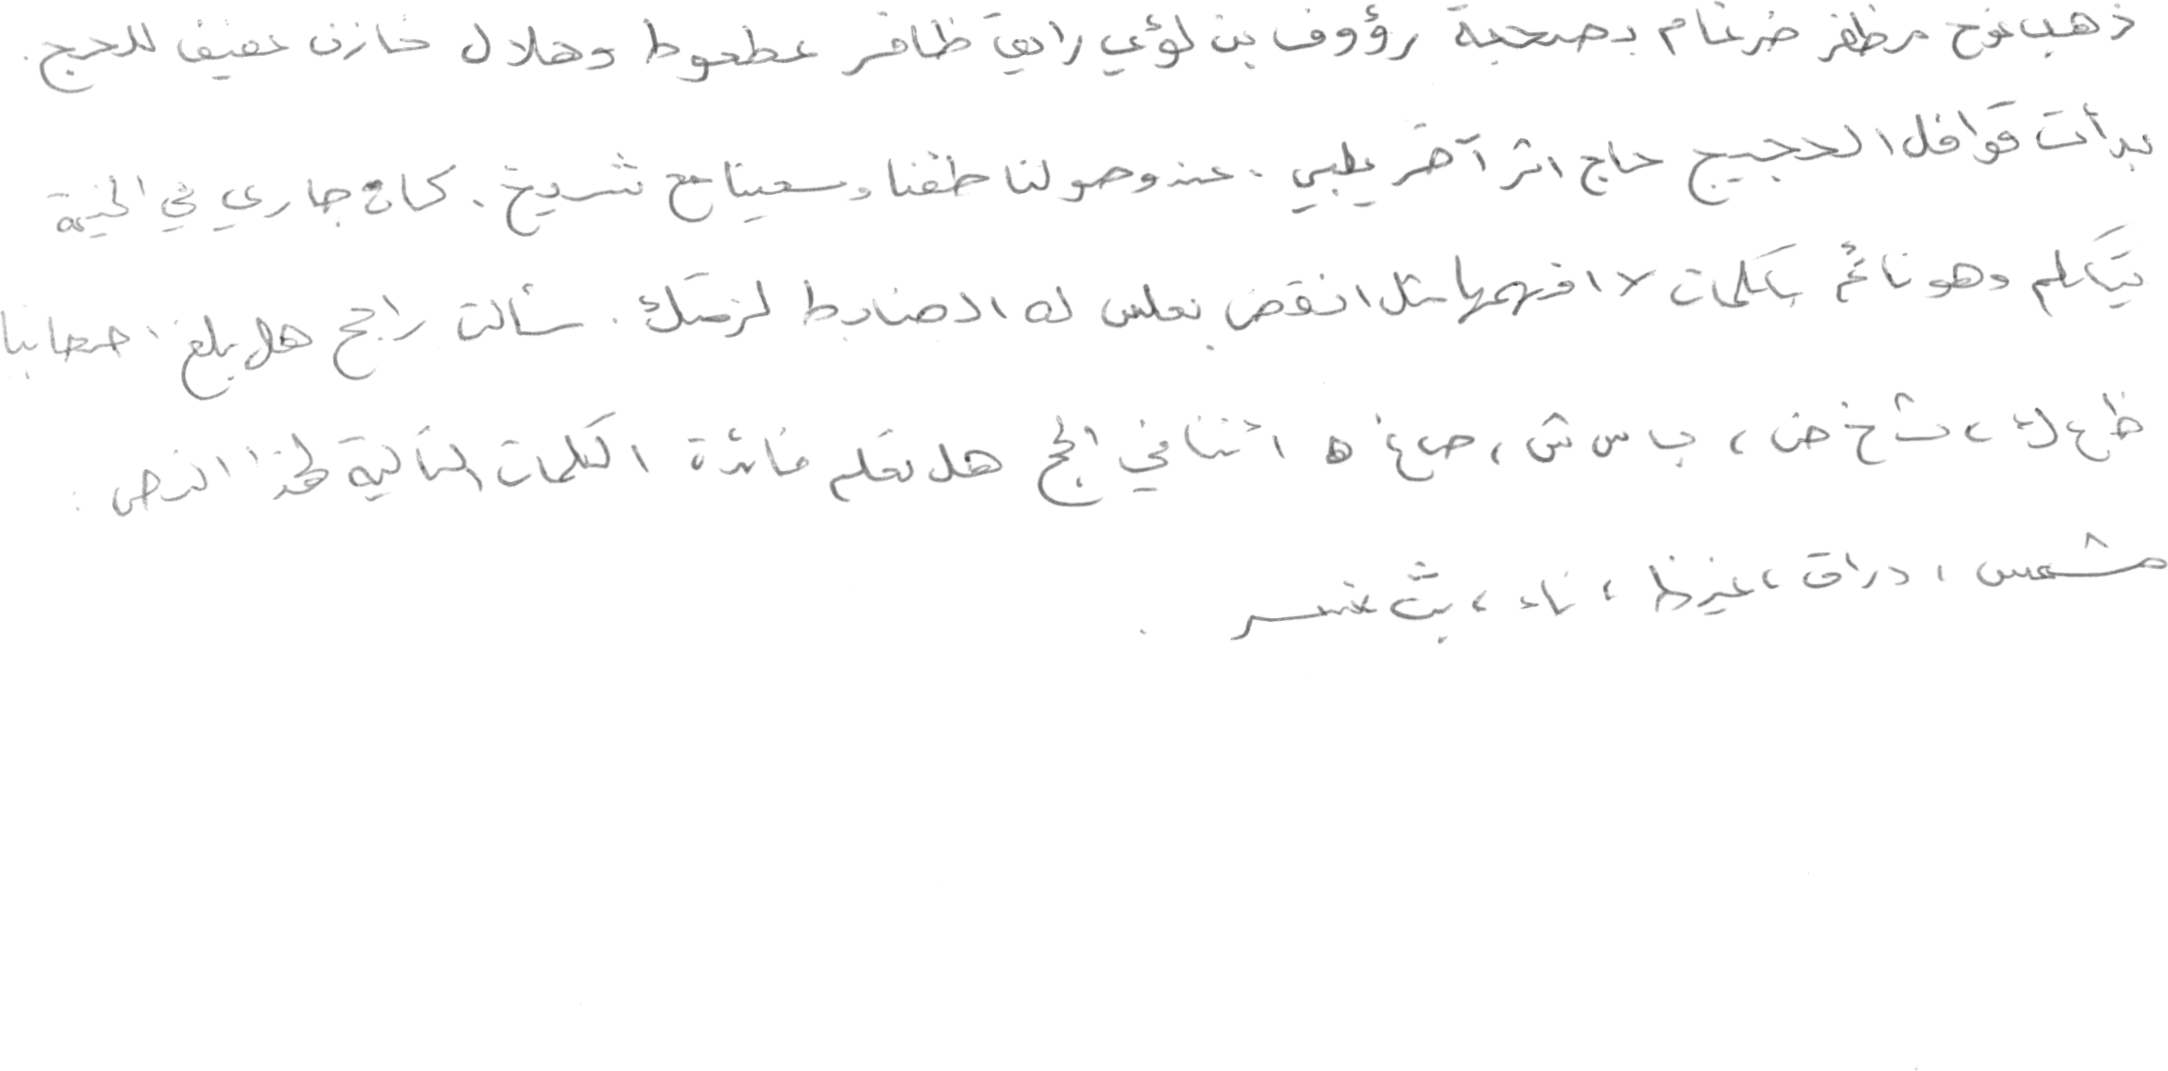 ذهب نوح مظفر ضرغام بصحبة رؤوف بن لؤي رايق ظافر عطعوط وهلال خازن عفيف للحج .
بدأت قوافل الحجيج حاج اثر آخر يلبي . عند وصولنا طفنا وسعينا مع شيخ . كان جاري في الخيمة
يتكلم وهو نائم بكلمات لا افهمها مثل انقض بعلس له الضابط لزمتك . سألت راجح هل بلغ احصائنا
ظ ع ك ، ث خ ض ، ب س ش ، ص غ ه اثنا في الحج هل تعلم فائدة الكلمات التالية لهذا النص :
مشمس ، دراق ، غيظ ، ناء ، بث